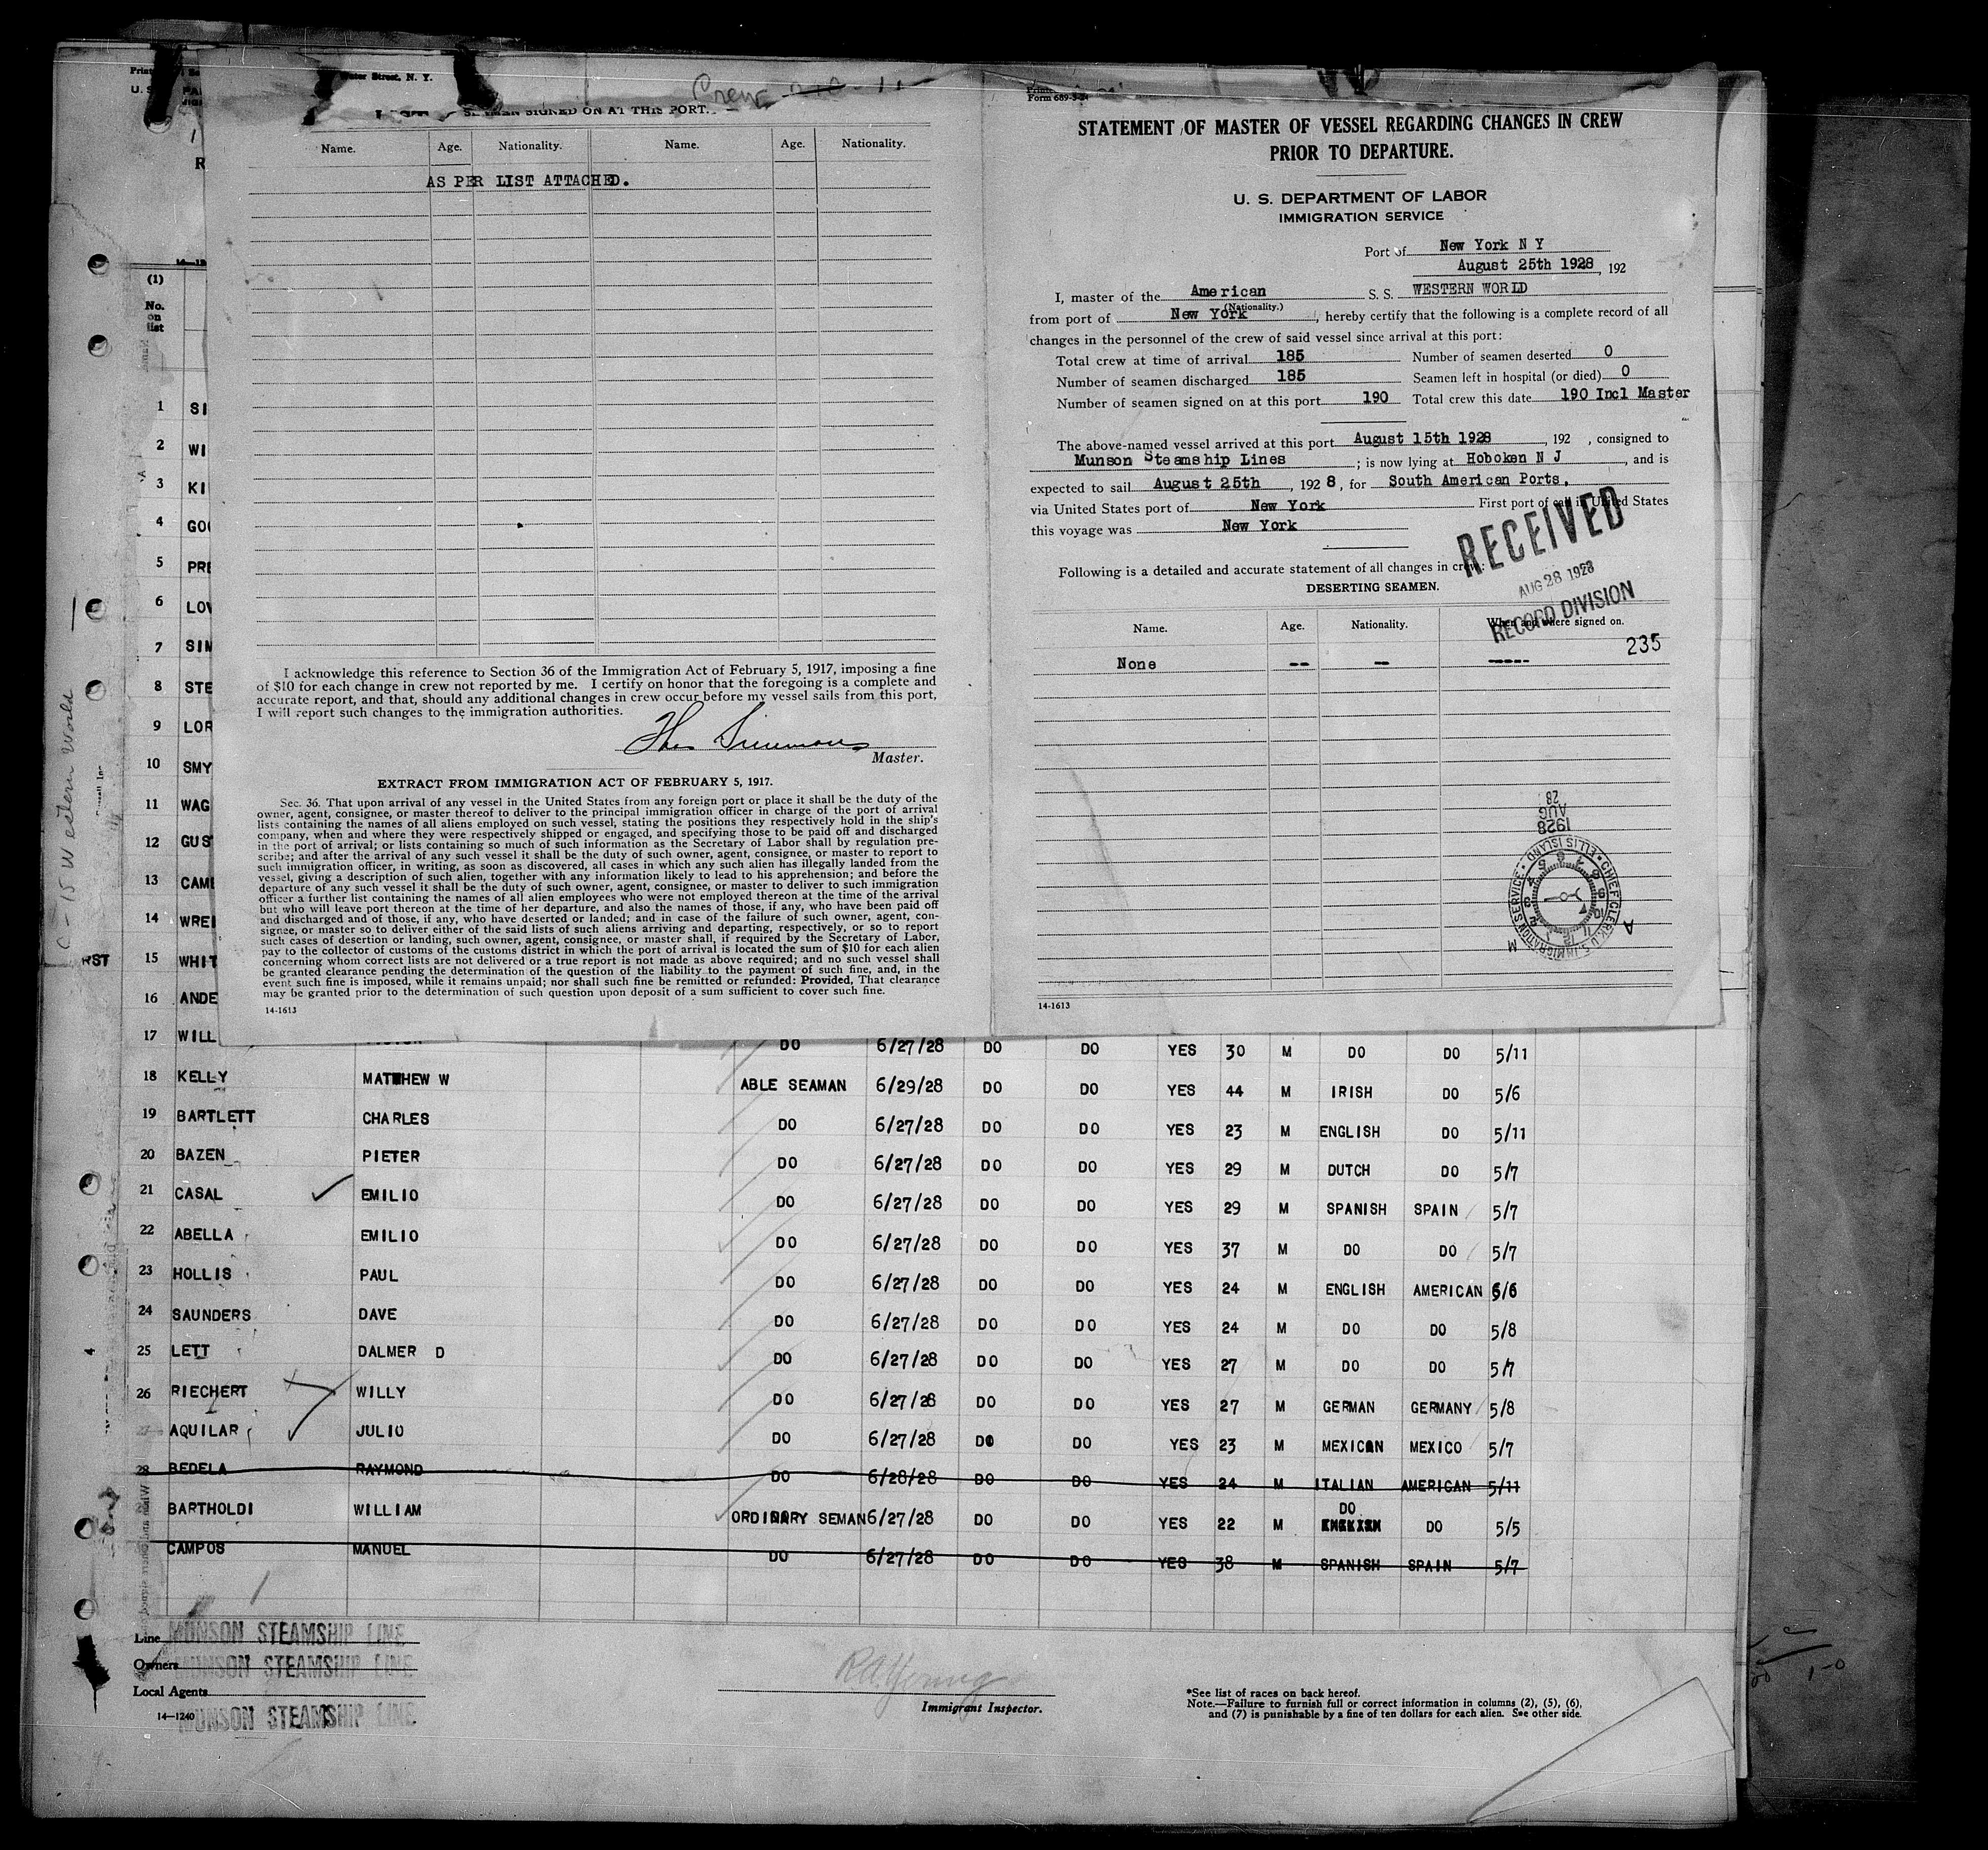 Water Street, N. Y.
Crew
SIGNED ON AT THIS PORT.
Name. Age. Nationality. Name. Age. Nationality.
AS PER LIST ATTACHED.
I acknowledge this reference to Section 36 of the Immigration Act of February 5, 1917, imposing a fine
of $10 for each change in crew not reported by me. I certify on honor that the foregoing is a complete and
accurate report, and that, should any additional changes in crew occur before my vessel sails from this port,
I will report such changes to the immigration authorities.
Thos Simmons
Master.
EXTRACT FROM IMMIGRATION ACT OF FEBRUARY 5, 1917.
Sec. 36. That upon arrival of any vessel in the United States from any foreign port or place it shall be the duty of the
owner, agent, consignee, or master thereof to deliver to the principal immigration officer in charge of the port of arrival
lists containing the names of all aliens employed on such vessel, stating the positions they respectively hold in the ship's
company, when and where they were respectively shipped or engaged, and specifying those to be paid off and discharged
in the port of arrival; or lists containing so much of such information as the Secretary of Labor shall by regulation pre-
scribe; and after the arrival of any such vessel it shall be the duty of such owner, agent, consignee, or master to report to
such immigration officer, in writing, as soon as discovered, all cases in which any such alien has illegally landed from the
vessel, giving a description of such alien, together with any information likely to lead to his apprehension; and before the
departure of any such vessel it shall be the duty of such owner, agent, consignee, or master to deliver to such immigration
officer a further list containing the names of all alien employees who were not employed thereon at the time of the arrival
but who will leave port thereon at the time of her departure, and also the names of those, if any, who have been paid off
and discharged and of those, if any, who have deserted or landed; and in case of the failure of such owner, agent, con-
signee, or master so to deliver either of the said lists of such aliens arriving and departing, respectively, or so to report
such cases of desertion or landing, such owner, agent, consignee, or master shall, if required by the Secretary of Labor,
pay to the collector of customs of the customs district in which the port of arrival is located the sum of $10 for each alien
concerning whom correct lists are not delivered or a true report is not made as above required; and no such vessel shall
be granted clearance pending the determination of the question of the liability to the payment of such fine, and, in the
event such fine is imposed, while it remains unpaid; nor shall such fine be remitted or refunded: Provided, That clearance
may be granted prior to the determination of such question upon deposit of a sum sufficient to cover such fine.
14-1613
Form 689
STATEMENT OF MASTER OF VESSEL REGARDING CHANGES IN CREW
PRIOR TO DEPARTURE.
U. S. DEPARTMENT OF LABOR
IMMIGRATION SERVICE
Port of New York N Y
August 25th 1928, 192
I, master of the American S. S. WESTERN WORLD
(Nationality.)
from port of New York, hereby certify that the following is a complete record of all
changes in the personnel of the crew of said vessel since arrival at this port:
Total crew at time of arrival 185 Number of seamen deserted 0
Number of seamen discharged 185 Seamen left in hospital (or died) 0
Number of seamen signed on at this port 190 Total crew this date 190 Incl Master
The above-named vessel arrived at this port August 15th 1928, 192 , consigned to
Munson Steamship Lines; is now lying at Hoboken N J, and is
expected to sail August 25th, 192 8, for South American Ports,
via United States port of New York First port of call in United States
this voyage was New York
RECEIVED
AUG 28 1928
RECORD DIVISION
Following is a detailed and accurate statement of all changes in crew:
DESERTING SEAMEN.
Name. Age. Nationality. When and where signed on.
235
None -- -- -----
28
AUG
1928
CHIEF CLERK, U.S. IMMIGRATION SERVICE. ELLIS ISLAND
A M
14-1613
C-15 Western World
(1)
No.
on
list
1 SI
2 WI
3 KI
4 GO
5 PRE
6 LOV
7 SIM
8 STE
9 LOR
10 SMY
11 WAG
12 GUS
13 CAM
14 WREI
RST 15 WHIT
16 ANDE
17 WILL DO 6/27/28 DO DO YES 30 M DO DO 5/11
18 KELLY MATTHEW W ABLE SEAMAN 6/29/28 DO DO YES 44 M IRISH DO 5/6
19 BARTLETT CHARLES DO 6/27/28 DO DO YES 23 M ENGLISH DO 5/11
20 BAZEN PIETER DO 6/27/28 DO DO YES 29 M DUTCH DO 5/7
21 CASAL EMILIO DO 6/27/28 DO DO YES 29 M SPANISH SPAIN 5/7
22 ABELLA EMILIO DO 6/27/28 DO DO YES 37 M DO DO 5/7
23 HOLLIS PAUL DO 6/27/28 DO DO YES 24 M ENGLISH AMERICAN 6/6
24 SAUNDERS DAVE DO 6/27/28 DO DO YES 24 M DO DO 5/8
25 LETT DALMER D DO 6/27/28 DO DO YES 27 M DO DO 5/7
26 RIECHERT WILLY DO 6/27/28 DO DO YES 27 M GERMAN GERMANY 5/8
27 AQUILAR JULIO DO 6/27/28 DO DO YES 23 M MEXICAN MEXICO 5/7
28 BEDELA RAYMOND DO 6/28/28 DO DO YES 24 M ITALIAN AMERICAN 5/11
BARTHOLDI WILLIAM ORDINARY SEMAN 6/27/28 DO DO YES 22 M DO DO 5/5
CAMPOS MANUEL DO 6/27/28 DO DO YES 38 M SPANISH SPAIN 5/7
Line MUNSON STEAMSHIP LINE
Owners MUNSON STEAMSHIP LINE
Local Agents
MUNSON STEAMSHIP LINE
14—1240
R A Young
Immigrant Inspector.
*See list of races on back hereof.
Note.—Failure to furnish full or correct information in columns (2), (5), (6),
and (7) is punishable by a fine of ten dollars for each alien. See other side.